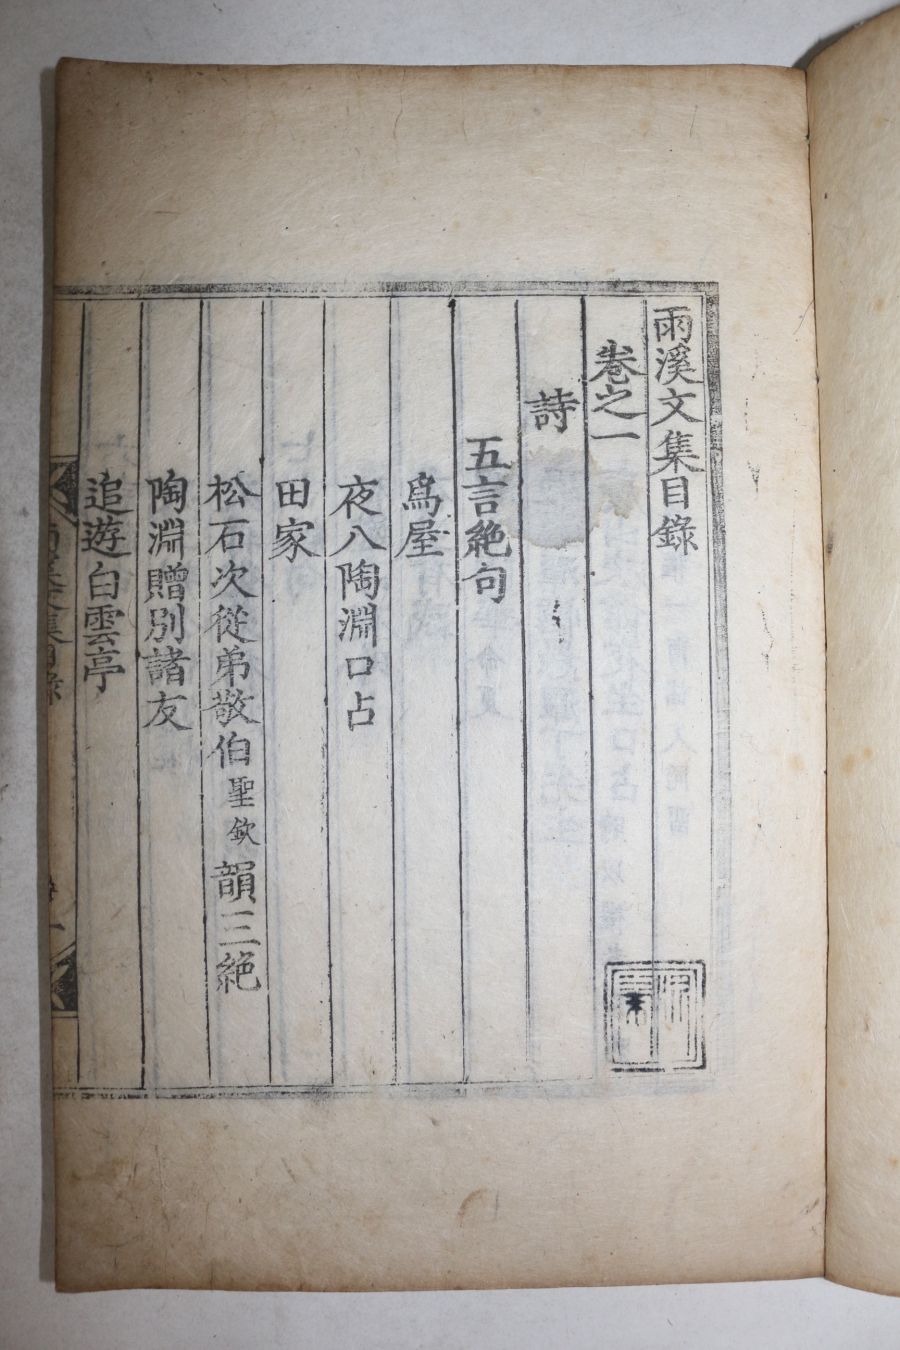 雨溪文集目錄
卷之一
詩
五言絶句
烏屋
夜入陶淵口占
田家
松石次從弟敬伯聖欽韻三絶
陶淵贈別諸友
追遊白雲亭